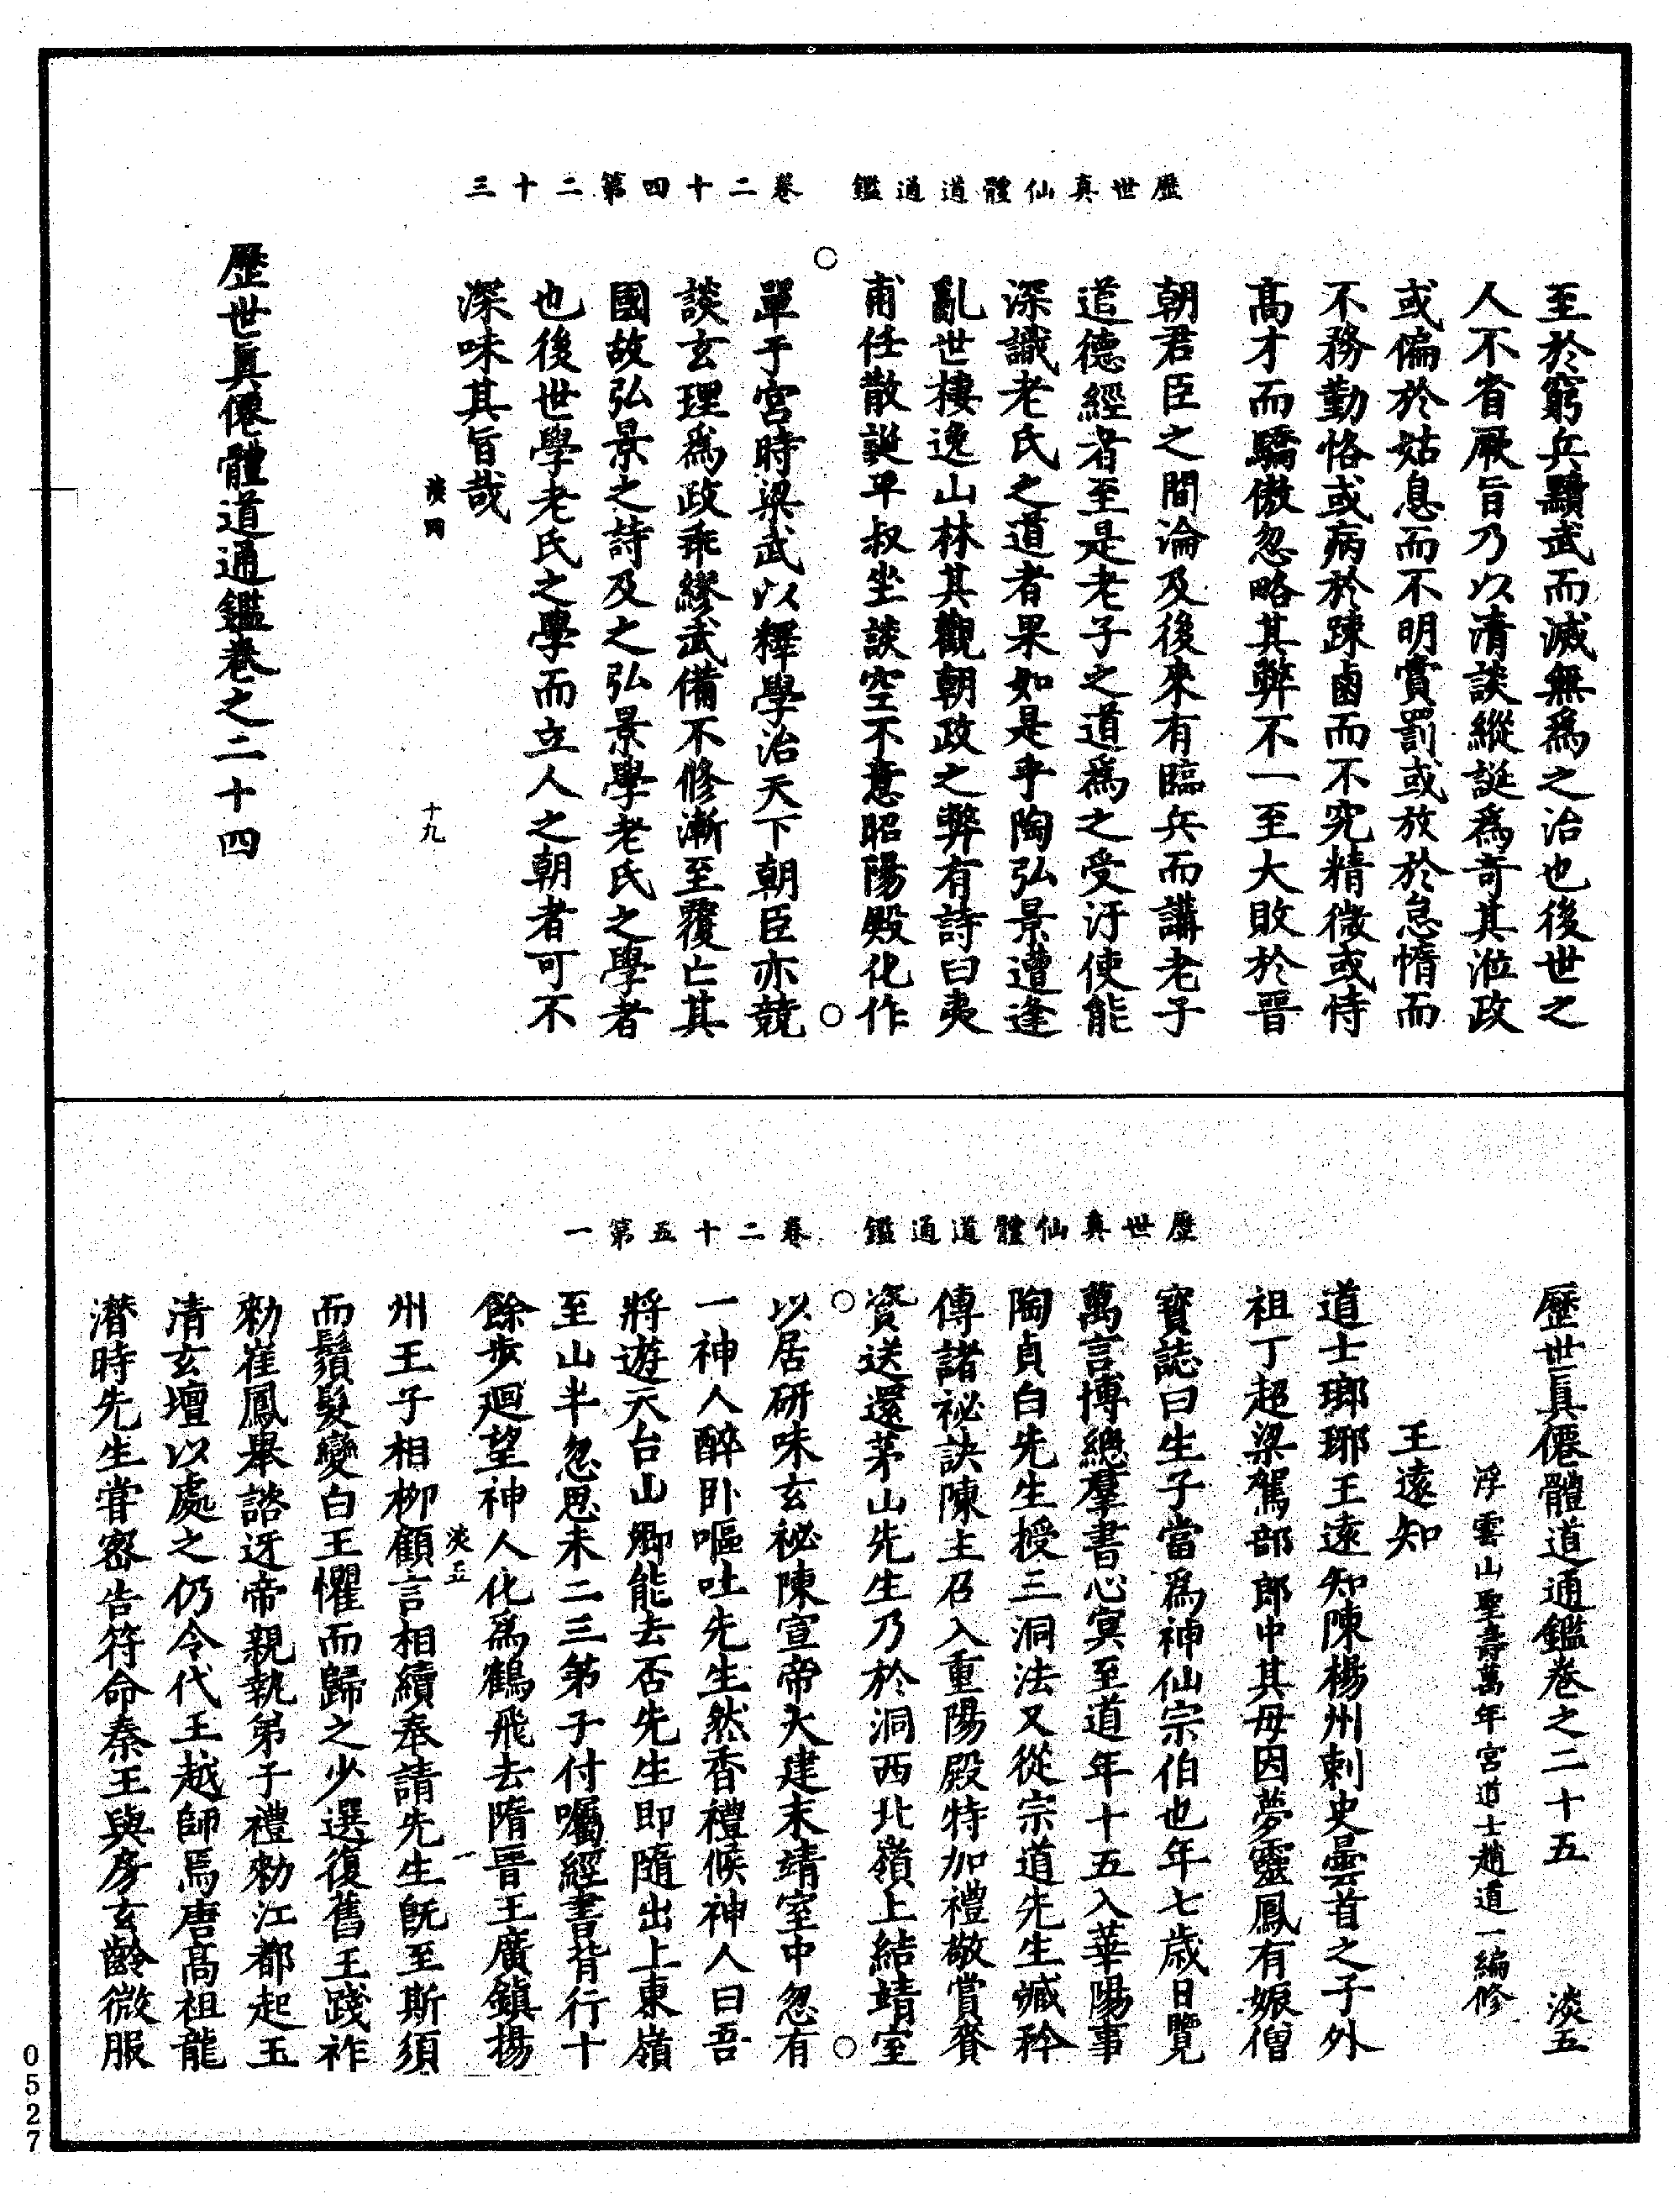 歷世真仙體道通鑑　卷二十四第二十三
至於窮兵黷武而滅無爲之治也後世之
人不省厥旨乃以清談縱誕爲奇其涖政
或偏於姑息而不明賞罰或放於怠惰而
不務勤恪或病於踈鹵而不究精微或恃
高才而驕傲忽略其弊不一至大敗於晉
朝君臣之間論及後來有臨兵而講老子
道德經者至是老子之道爲之受汙使能
深識老氏之道者果如是乎陶弘景遭逢
亂世棲逸山林其觀朝政之弊有詩曰夷
甫任散誕平叔坐談空不意昭陽殿化作
單于宮時梁武以釋學治天下朝臣亦競
談玄理爲政乖繆武備不修漸至覆亡其
國故弘景之詩及之弘景學老氏之學者
也後世學老氏之學而立人之朝者可不
深味其旨哉
淡四　十九
歷世眞僊體道通鑑卷之二十四
歷世真仙體道通鑑　卷二十五第一
歷世眞僊體道通鑑卷之二十五　淡五
浮雲山聖壽萬年宮道士趙道一編修
王遠知
道士瑯琊王遠知陳楊州刺史曇首之子外
祖丁超梁駕部郎中其母因夢靈鳳有娠僧
寶誌曰生子當爲神仙宗伯也年七歲日覽
萬言博總羣書心冥至道年十五入華陽事
陶貞白先生授三洞法又從宗道先生臧矜
傳諸祕訣陳主召入重陽殿特加禮敬賞賚
資送還茅山先生乃於洞西北嶺上結靖室
以居研味玄祕陳宣帝大建末靖室中忽有
一神人醉卧嘔吐先生然香禮候神人曰吾
將遊天台山卿能去否先生即隨出上東嶺
至山半忽思未二三弟子付囑經書背行十
餘步廻望神人化爲鶴飛去隋晉王廣鎮揚
淡五　一
州王子相柳顧言相續奉請先生旣至斯須
而鬚髮變白王懼而歸之少選復舊王踐祚
勑崔鳳舉諮迓帝親執弟子禮勑江都起玉
清玄壇以處之仍令代王越師焉唐高祖龍
潛時先生嘗密告符命秦王與房玄齡微服
0527